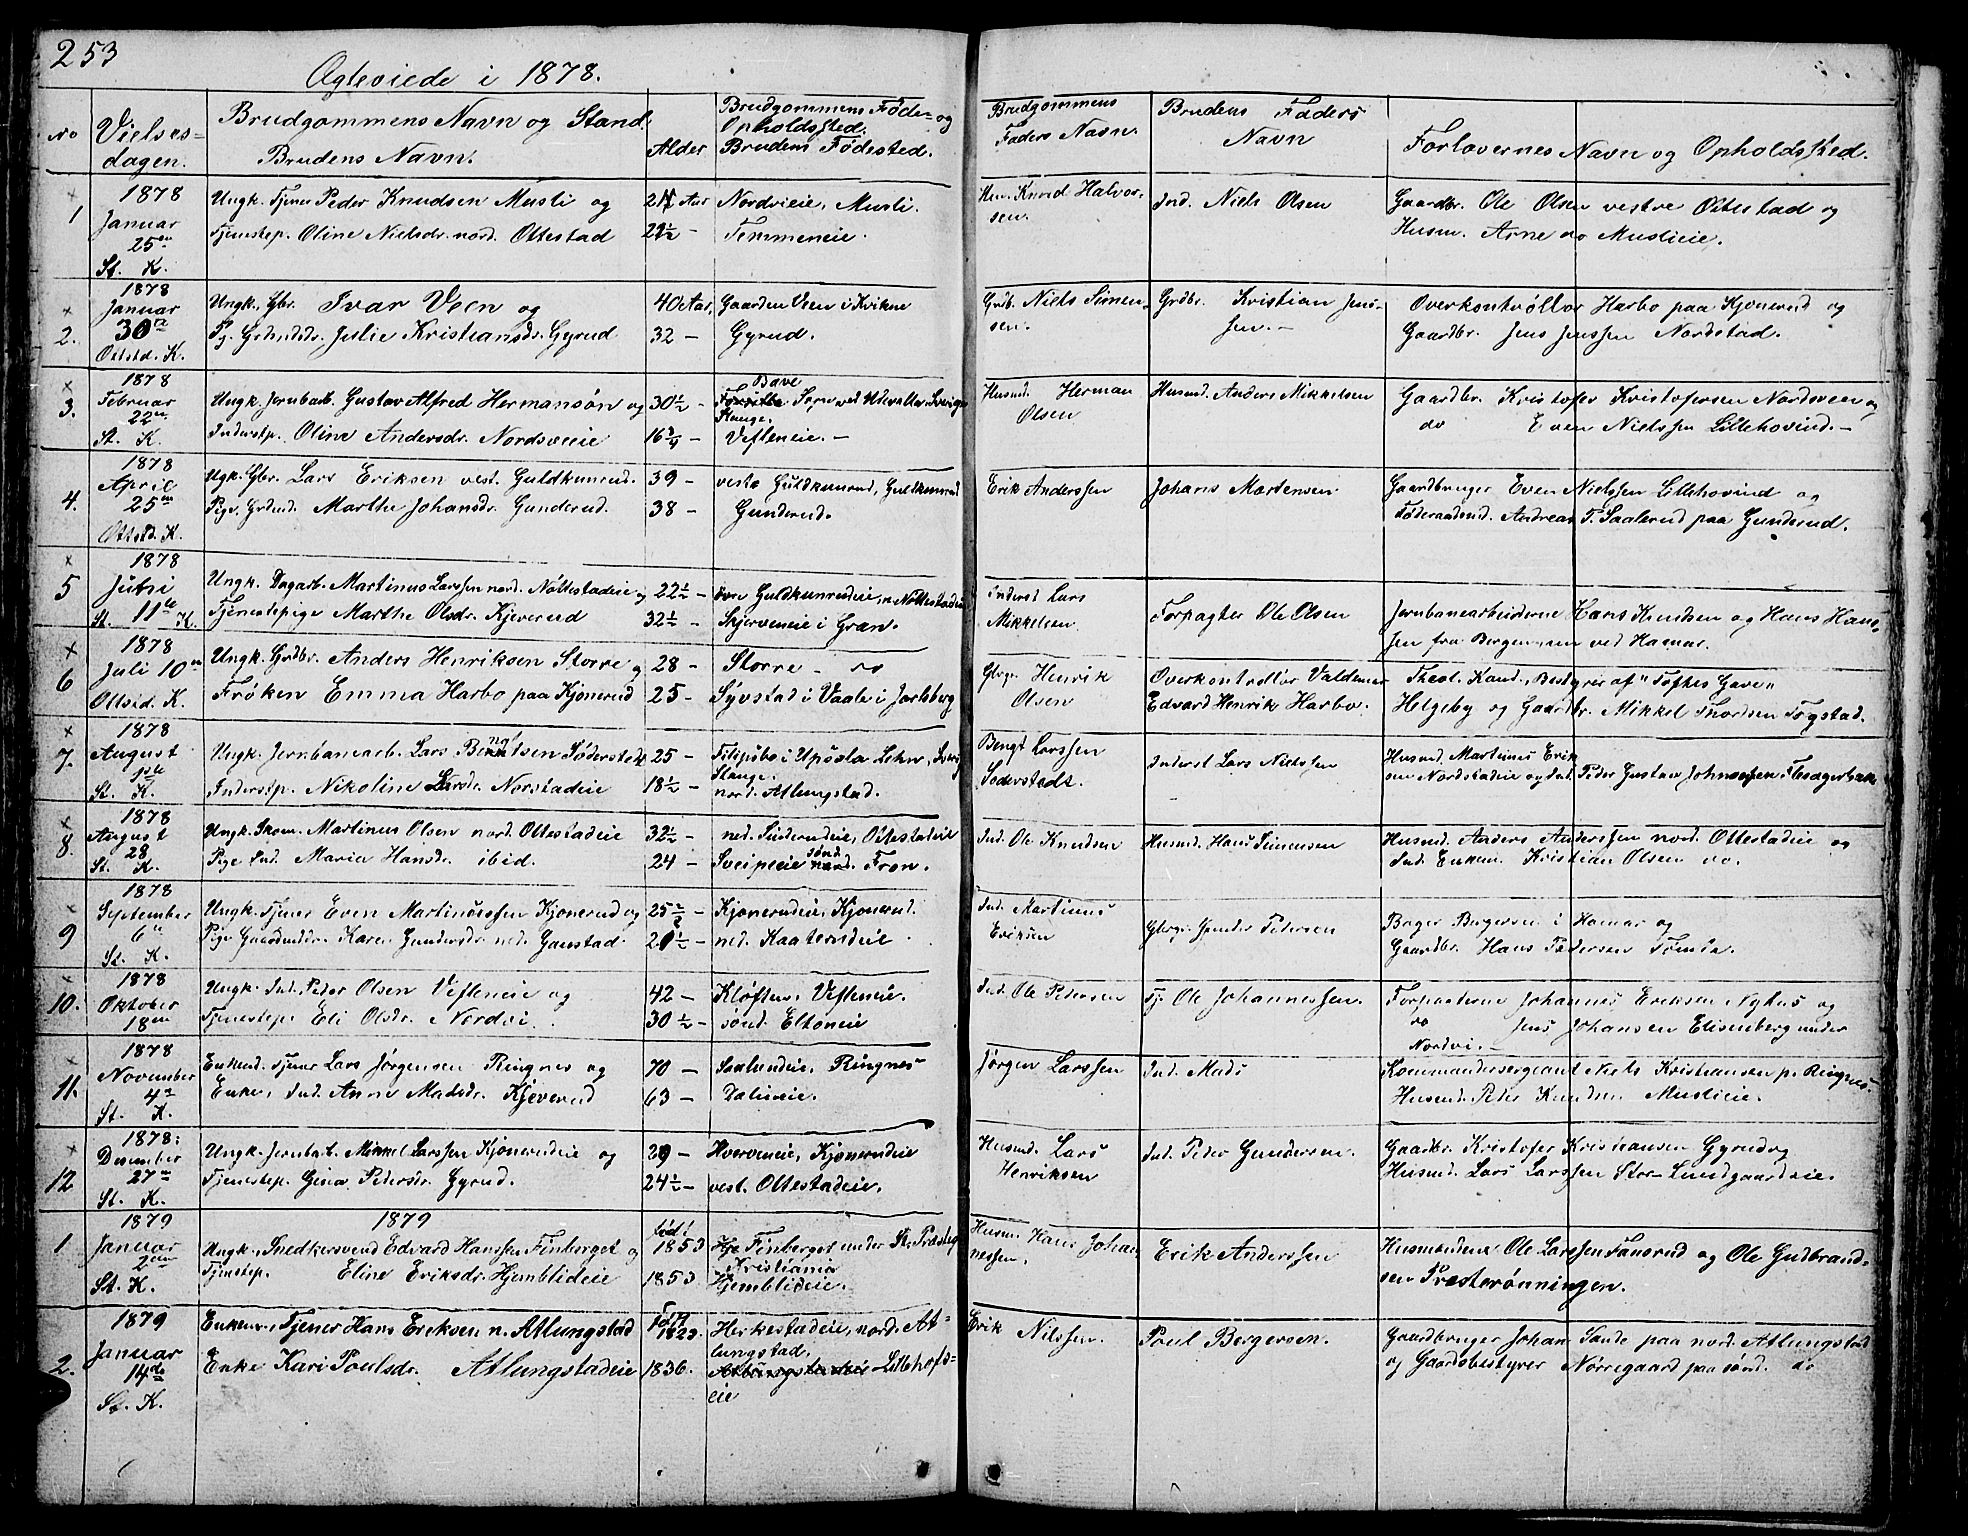 253
Ægteviede i 1878.
No
Vielses-
dagen.
Brudgommens Navn og Stand.
Brudens Navn.
Alder
Brudgommens Føde- og
Opholdssted.
Brudens Fødested.
Brudgommens
Faders Navn.
Brudens Faders
Navn
Forlovernes Navn og Opholdssted.
1
1878
Januar
25en
St. K.
Ungk. Tjener Peder Knudsen Musli og
Tjenestep. Oline Nielsdr. nord. Ottestad
Aar
22½ -
Nordvieie, Musli.
Temmeneie.
Knud Halvor-
sen.
Ind. Niels Olsen
Gaardbr. Ole Olsen vestre Ottestad og
Husm. Arne do Muslieie.
2.
1878
Januar
30te
Ottstd. K.
Ungk. Gbr. Ivar Veen og
Pg. Grdmdsdr. Julie Kristiansdr. Gyrud
40 Aar,
32 -
Gaarden Veen i Kvikne
Gyrud.
Grdb. Niels Simen-
sen.
Grdbr. Kristian Jens-
sen. -
Overkontrollør Harbo paa Kjonerud og
Gaardbr. Jens Jenssen Nordstad.
3.
1878
Februar
22en
St. K.
Ungk. Jernbarb. Gustav Alfred Hermansøn og
Inderstp. Oline Andersdr. Nordsveeie
30½ -
16¾ -
Bave
Sogn ved Udevalla, Sverige
Stange.
Vefleneie. -
Husmd. Herman
Olsen
Husmd. Anders Mikkelsen
Gaardbr. Kristofer Kristofersen Nordsveen og
do Even Nielssen Lillehovind. -
4.
1878
April
25en
Ottstd. K.
Ugk. Gbr. Lars Eriksen vest. Guldkunrud.
Pige Grdmd. Marthe Johansdr. Gunderud.
39 -
38 -
vestre Guldkunrud, Guldkunrud
Gunderud.
Erik Anderssen
Johans Mortensen
Gaardbruger Even Nielssen Lillehovind og
Føderaadsmd. Andreas P. Saalerud paa Gunderud.
5
1878
Juni
11te
St. K.
Ungk. Dagarb. Martinus Larssen nord. Nøttestadeie og
Tjenestepige Marthe Olsdr. Kjeverud
22½ -
32½ -
øvre Guldkunrudeie, n. Nøttestadeie
Skjerveneie i Gran.
Inderst Lars
Mikkelsen.
Forpagter Ole Olsen
Jernbanearbeiderne Hans Knudsen og Hans Hans-
sen fra Bergengen ved Hamar.
6
1878
Juli 10en
Ottstd. K.
Ungk. Grdbr. Anders Henriksen Storre og
Frøken Emma Harbo paa Kjonerud
28 -
25 -
Storre - do
Syvstad i Vaale i Jarlsberg
Gbrgr. Henrik
Olsen
Overkontrollør Valdemar
Edvard Henrik Harbo.
Theol. Kand., Bestyrer af "Toftes Gave"
Helgeby og Gaardbr. Mikkel Thordsen Fogstad.
7.
1878
August
1ste
St. K.
Ungk. Jernbanearb. Lars Bengtsen Søderstedt
Inderstp. Nikoline Larsdr. Norstadeie
25 -
18½ -
Filipsbo i Upsala Lehn, Sverig
Stange.
nord. Atlungstad.
Bengt Larssen
Soderstedt.
Inderst Lars Nielssen
Husmd. Martinus Erik
sen Nordstadeie og Ind. Peder Gustav Johnsen Flesagerbak
8.
1878
August
28
St. K.
Ungk. Skom. Martinus Olsen nord. Ottestadeie
Pige Ind. Maria Hansdr. ibid.
32½ -
24 -
ned. Sinderudeie, Ottestadeie
Sveipeie sønd. Fron.
Ind. Ole Knudsen
Husmd. Hans Simensen
Husmd. Anders Anderssen nord. Ottestadeie og
Ind. Enkem. Kristian Olsen do.
9
1878
September
6te
St. K.
Ungk. Tjener Even Martinussen Kjonerud og
Pige Gaardmdsdr. Karen Gundersdr. ned. Gaustad.
Kjonerudeie, Kjonerud.
ned. Kaaterudeie
Ind. Martinus
Eriksen
Gbrgr. Gunder Pedersen
Bager Birgersen i Hamar og
Gaardbr. Hans Pedersen Tomta.
10.
1878
Oktober
18en
Ungk. Ind. Peder Olsen Vefleneie og
Tjenestep. Eli Olsdr. Nordvi.
42 -
30½ -
Kløften, Vefleneie.
sønd. Eltoneie
Ind. Ole Pedersen
Tj. Ole Johannessen.
Forpagterne Johannes Eriksen Nyhus og
do Jens Johansen Elisenberg under
Nordvi. -
11.
1878
November
4de
St. K.
Enkemd. Tjener Lars Jørgensen Ringnes og
Enke, Ind. Anne Madsdr. Kjeverud
70 -
63 -
Saalundeie, Ringnes
Dalineie.
Jørgen Larssen
Ind. Mads
Kommandersergeant Niels Kristiansen p. Ringnes
Husmd. Peder Knudsen Muslieie.
12
1878:
December
27de
St. K.
Ungk. Jernbarb. Mikkel Larssen Kjonerudeie og
Tjenestep. Gina Pedersdr. Gyrud.
29 -
24½ -
Hverveneie, Kjonerudeie
vest. Ottestadeie.
Husmd. Lars
Henriksen
Ind. Peder Gundersen.
Gaardbr. Kristofer Kristiansen Gyrud og
Husmd. Lars Larssen Stor-Lundgaardseie.
1879
1
1879
Januar
2den
St. K.
Ungk. Snedkersvend Edvard Hanssen Finberget og
Tjenestep. Eline Eriksdr. Hjemblideie
fød i
1853
1853
Finberget under St. Præsteg
Kristiania
Hjemblideie.
Husm. Hans Johan-
nessen.
Erik Anderssen
Husmændene Ole Larssen Fansrud og Ole Gudbrand-
sen Presterønningen.
2.
1879
Januar
14de
St. K.
Enkem., Tjener Hans Eriksen n. Atlungstad
Enke Kari Poulsdr. Atlungstadeie
Født
1823.
1836.
Herkestadeie, nord. At-
lungstad,
Atlungstadeie Lillehofs-
eie
Erik Nilssen.
Poul Bergersen.
Gaardbruger Johan Sande paa nord. Atlungstad
og Gaardsbestyrer Nørregaard paa sønd. do